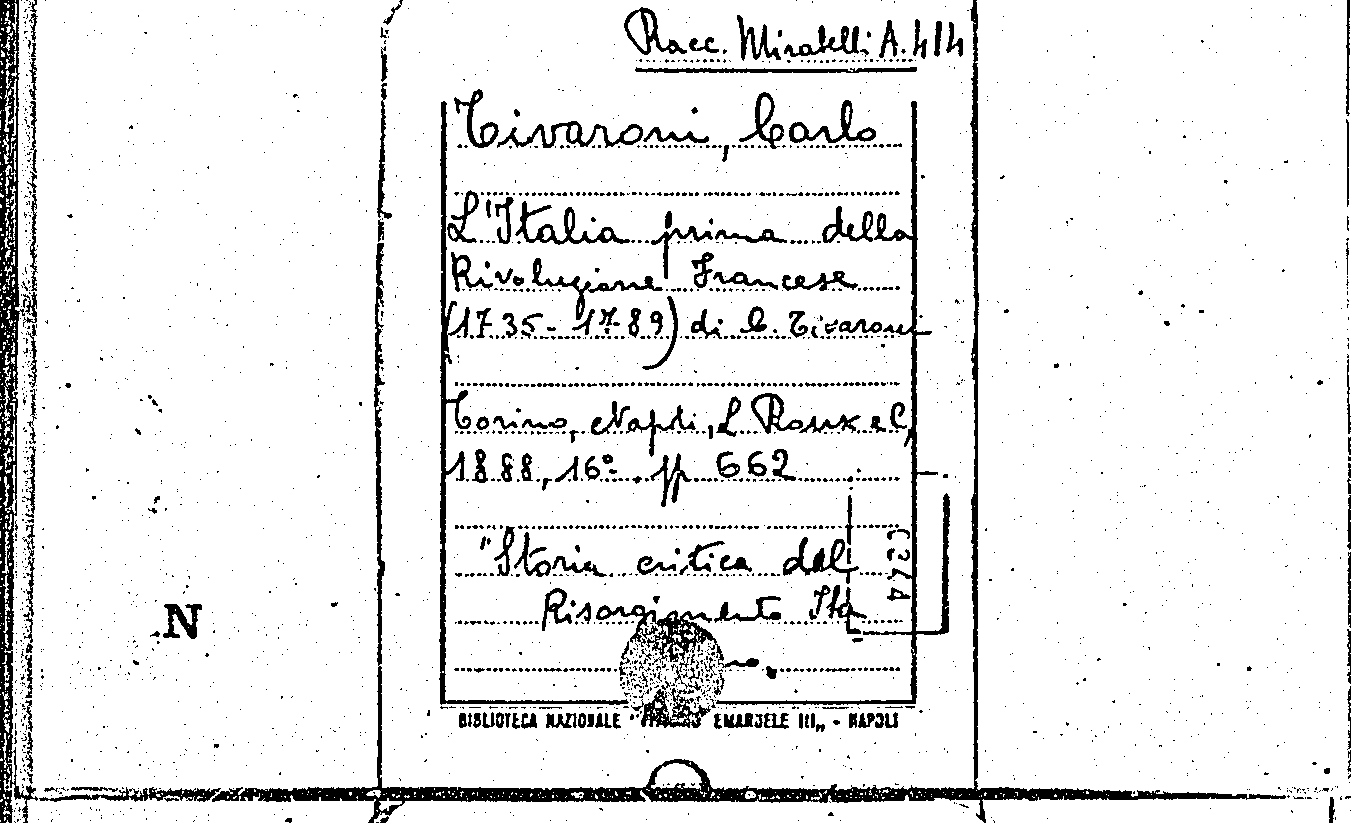 Racc. Miratelli A. 414
Tivaroni, Carlo
L'Italia prima della
Rivoluzione Francese
(1735-1789) di C. Tivaroni
Torino, Napoli, L Roux e C,
1888, 16° . pp 662
"Storia critica del
Risorgimento Ita
no.
BIBLIOTECA NAZIONALE " EMANUELE III„ - NAPOLI
N